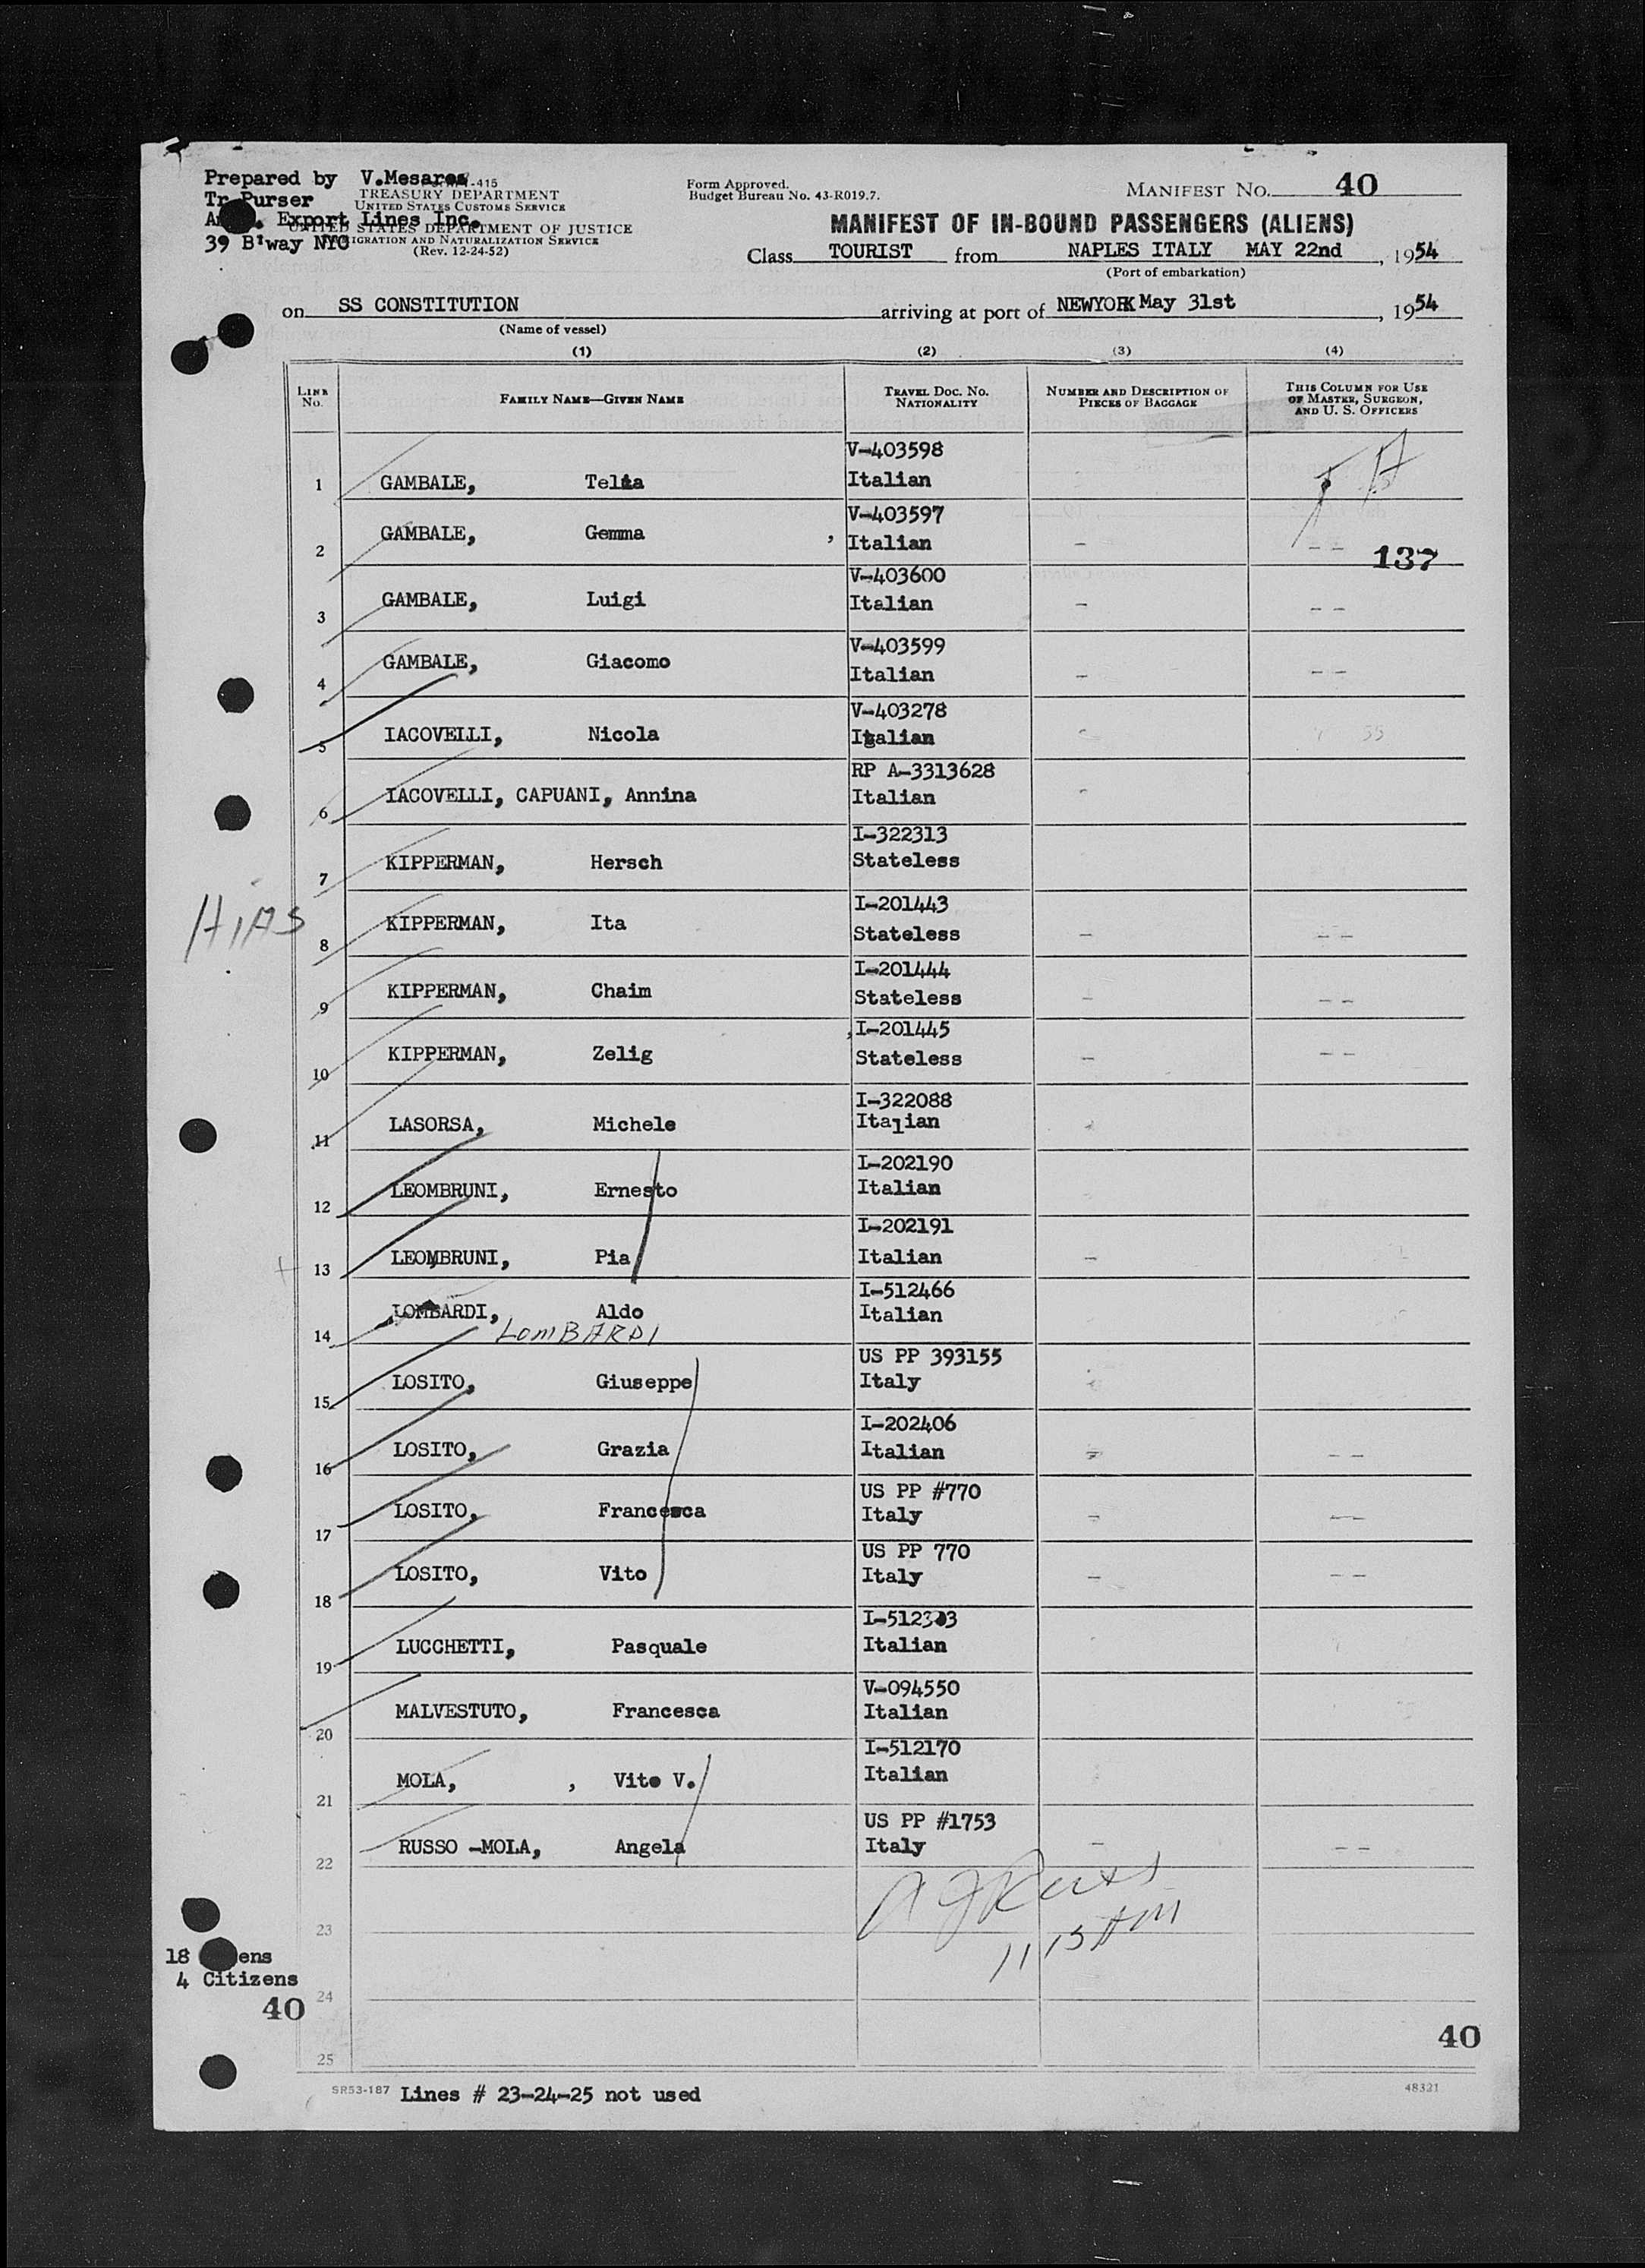 Prepared by V.Mesaros
-415
Form Approved.
Budget Bureau No. 43-R019.7.
MANIFEST No. 40
TREASURY DEPARTMENT
Tr Purser
UNITED STATES CUSTOMS SERVICE
Export Lines Inc.
UNITED STATES DEPARTMENT OF JUSTICE
MANIFEST OF IN-BOUND PASSENGERS (ALIENS)
39 B'way NYC
IMMIGRATION AND NATURALIZATION SERVICE
(Rev. 12-24-52)
Class TOURIST from NAPLES ITALY MAY 22nd, 1954
(Port of embarkation)
on SS CONSTITUTION arriving at port of NEWYORK May 31st, 1954
(Name of vessel)
(1) (2) (3) (4)
LINE No. FAMILY NAME—GIVEN NAME TRAVEL DOC. NO. NATIONALITY NUMBER AND DESCRIPTION OF PIECES OF BAGGAGE THIS COLUMN FOR USE OF MASTER, SURGEON, AND U. S. OFFICERS
V-403598
1 GAMBALE, Telia Italian
V-403597
2 GAMBALE, Gemma , Italian — — — 137
V-403600
3 GAMBALE, Luigi Italian — — —
V-403599
4 GAMBALE, Giacomo Italian — — —
V-403278
5 IACOVELLI, Nicola Italian
RP A-3313628
6 IACOVELLI, CAPUANI, Annina Italian
I-322313
7 KIPPERMAN, Hersch Stateless
HIAS
I-201443
8 KIPPERMAN, Ita Stateless — — —
I-201444
9 KIPPERMAN, Chaim Stateless — — —
I-201445
10 KIPPERMAN, Zelig Stateless — — —
I-322088
11 LASORSA, Michele Italian
I-202190
12 LEOMBRUNI, Ernesto Italian
I-202191
13 LEOMBRUNI, Pia Italian —
I-512466
14 LOMBARDI, Aldo Italian
LOMBARDI
US PP 393155
15 LOSITO, Giuseppe Italy
I-202406
16 LOSITO, Grazia Italian — — —
US PP #770
17 LOSITO, Francesca Italy — — —
US PP 770
18 LOSITO, Vito Italy — — —
19 LUCCHETTI, Pasquale Italian
V-094550
20 MALVESTUTO, Francesca Italian
I-512170
21 MOLA, , Vito V. Italian
US PP #1753
22 RUSSO -MOLA, Angela Italy — — —
23
11 15 AM
18 ens
4 Citizens
24
40
40
25
SR53-187 Lines # 23-24-25 not used
48321